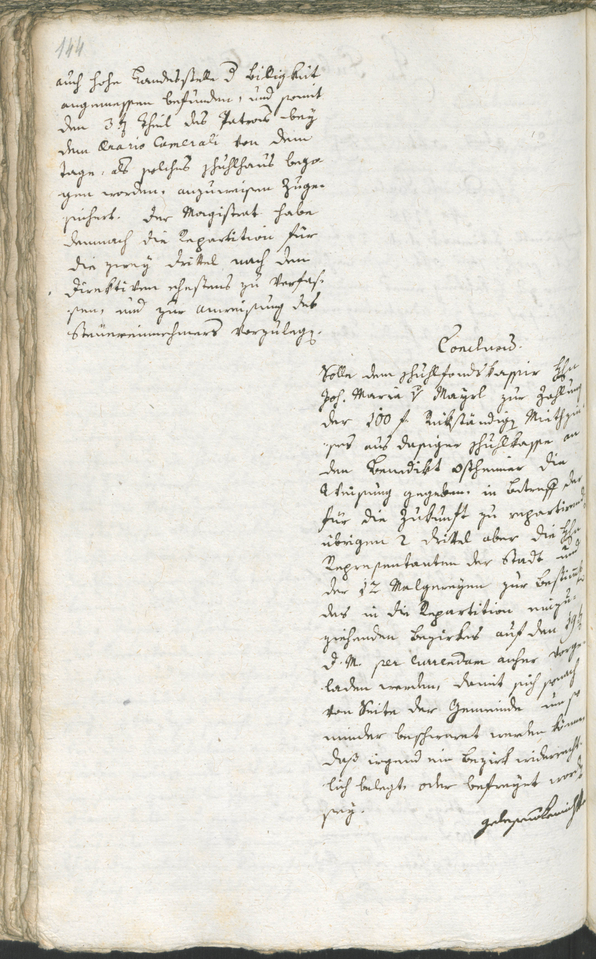 144
auch hohe Landesstelle d Billigkeit
angemessen befunden, und somit
den 3t Theil des Patrons bey
dem Aerario Camerali von dem
tage, als solches Schulhaus bezo-
gen worden, anzuweisen zuge-
sichert. Der Magistrat habe
demnach die Repartition für
die zwey drittel nach den
Direktiven ehestens zu verfas-
sen, und zur Anweisung des
Steuereinnehmers vorzulegen.
Conclusum.
Solle dem Schulfondskassier Hrn
Joh. Maria v Mayrl zur Zahlung
der 100 f Rückständigen Miethzin-
ses aus dasiger Schulkasse an
den Benedikt Ostheimer die
Weisung gegeben, in Betreff der
für die Zukunft zu repartirenden
übrigen 2 drittel aber die Hrn
Repraesentanten der Stadt und
der 12 Malgreyen zur Bestimmung
des in die Repartition einzu-
ziehenden Bezirkes auf den 19t
d. M. per Currendam anher vorge-
laden werden, damit sich hernach
von Seite der Gemeinde um so
minder beschweret werden könne,
daß irgend ein Bezirk widerrecht-
lich belegt oder befreyet worden
sey.